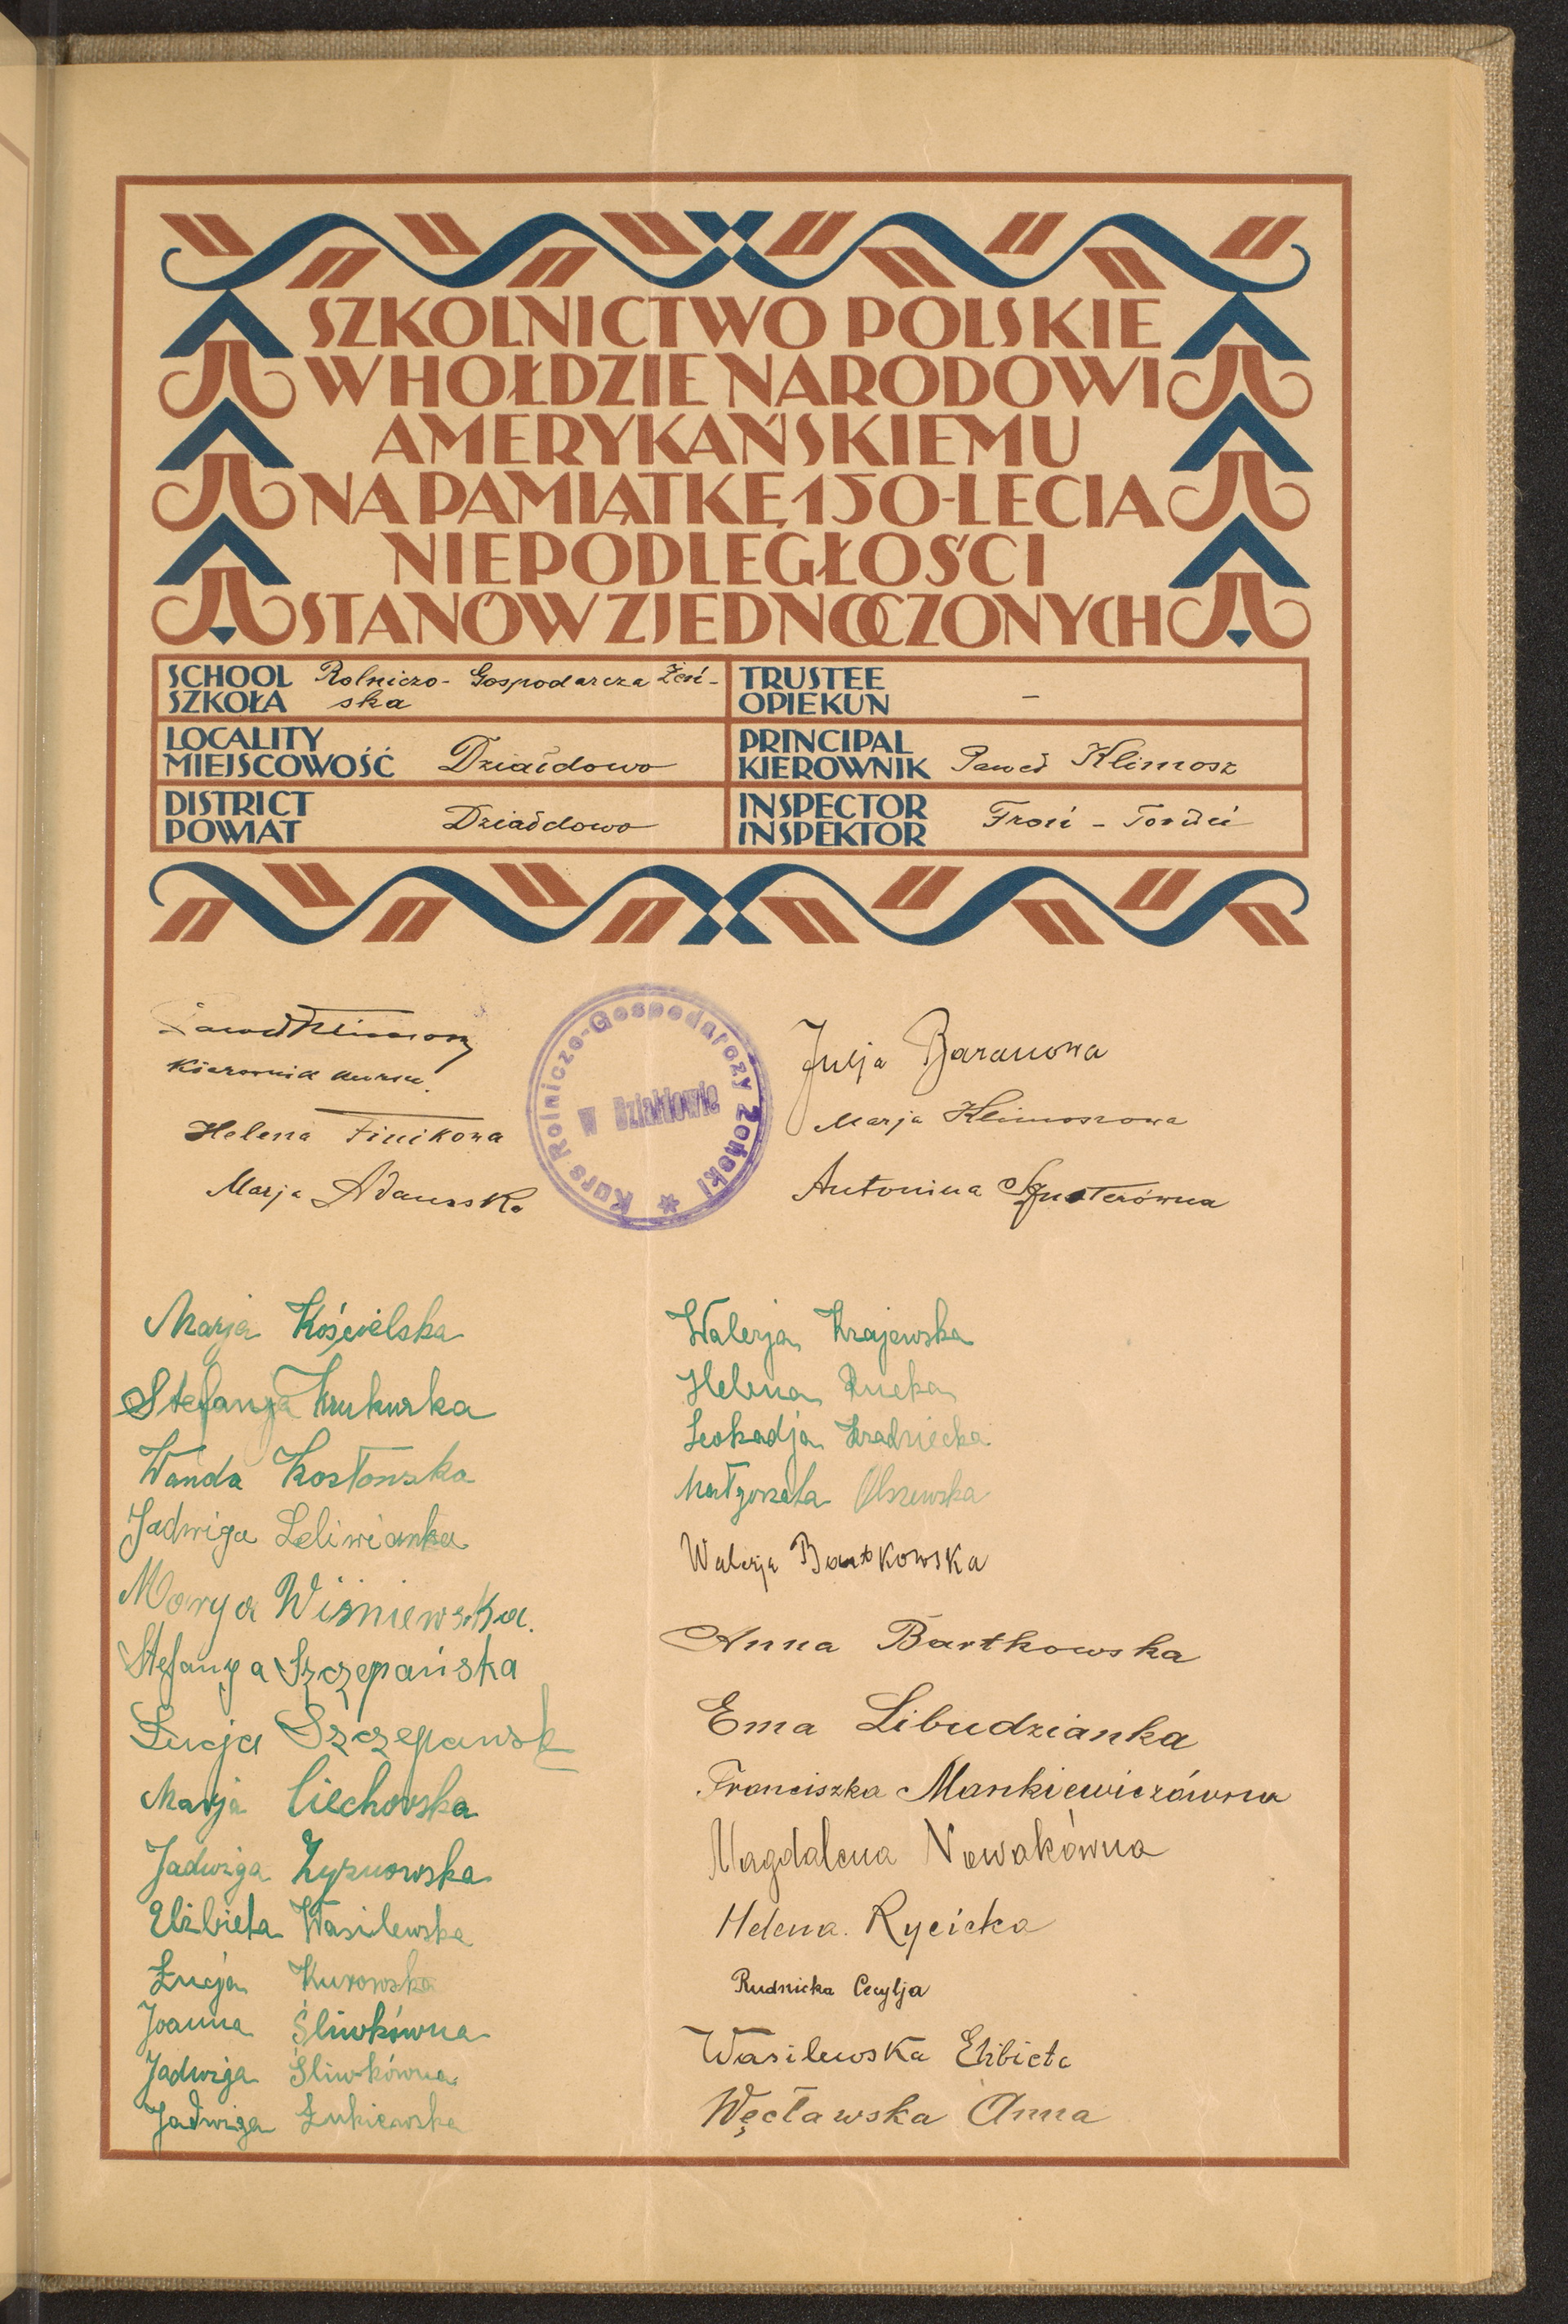 SZKOLNICTWO POLSKIE
W HOŁDZIE NARODOWI
AMERYKAŃSKIEMU
NA PAMIĄTKĘ 150-LECIA
NIEPODLEGŁOŚCI
STANÓW ZJEDNOCZONYCH
SCHOOL
SZKOŁA
Rolniczo- Gospodarcza Żeń-
ska
TRUSTEE
OPIEKUN
–
LOCALITY
MIEJSCOWOŚĆ
Działdowo
PRINCIPAL
KIEROWNIK
Paweł Klimosz
DISTRICT
POWIAT
Działdowo
INSPECTOR
INSPEKTOR
Paweł Klimosz
Kierownik kursu.
Helena Finikowa
Marja Adamska
Kurs Rolniczo-Gospodarczy Żeński
w Działdowie
Julja Baranowa
Marja Klimoszowa
Antonina Szusterówna
Marja Kościelska
Stefanja
Wanda Kozłowska
Jadwiga Leliwianka
Marya Wiśniewska.
Stefanya Szczepańska
Łucja Szczepańsk
Marja Ciechowska
Jadwiga Żyznowska
Elżbieta Wasilewska
Łucja Kurowska
Joanna Śliwkówna
Jadwiga Śliwkówna
Jadwiga Łukiewska
Walerja Krajewska
Helena
Leokadja
Małgorzata Olszewska
Walerja Bartkowska
Anna Bartkowska
Ema Libudzianka
Franciszka Mankiewiczówna
Magdalena Nowakówna
Helena. Rycicka
Rudnicka Cecylja
Wasilewska Elżbieta
Węcławska Anna